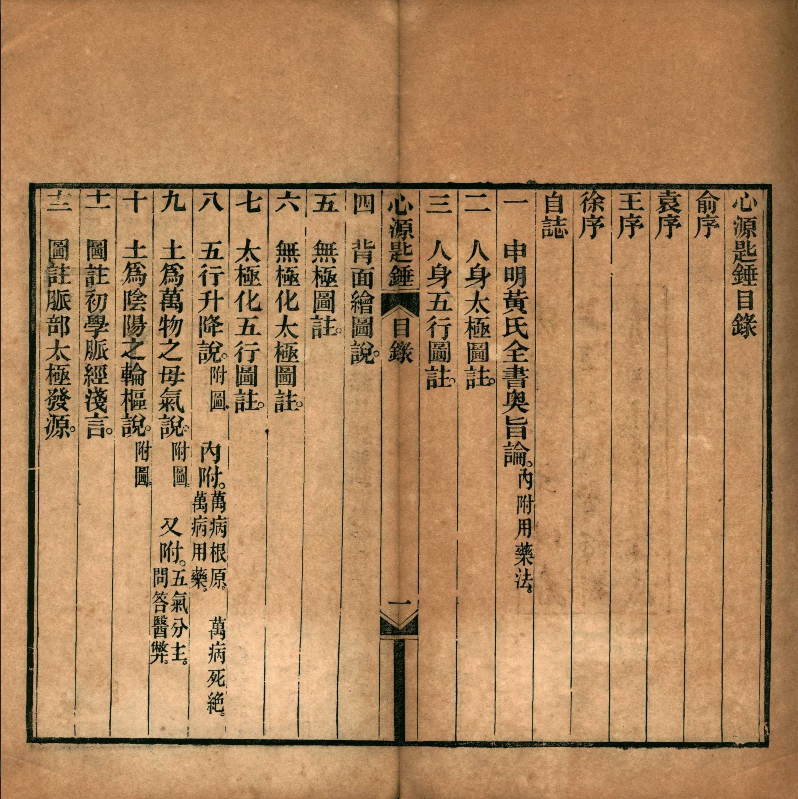 心源匙錘目錄
俞序
袁序
王序
徐序
自誌
一 申明黃氏全書奧旨論。內附用藥法。
二 人身太極圖註。
三 人身五行圖註。
心源匙錘 目錄 一
四 背面繪圖說。
五 無極圖註。
六 無極化太極圖註。
七 太極化五行圖註。
八 五行升降說。附圖 內附。萬病根原。萬病用藥。萬病死絕。
九 土為萬物之母氣說。附圖 又附。五氣分主。問答醫弊。
十 土為陰陽之輪樞說。附圖。
十一 圖註初學脈經淺言。
十二 圖註脈部太極發源。